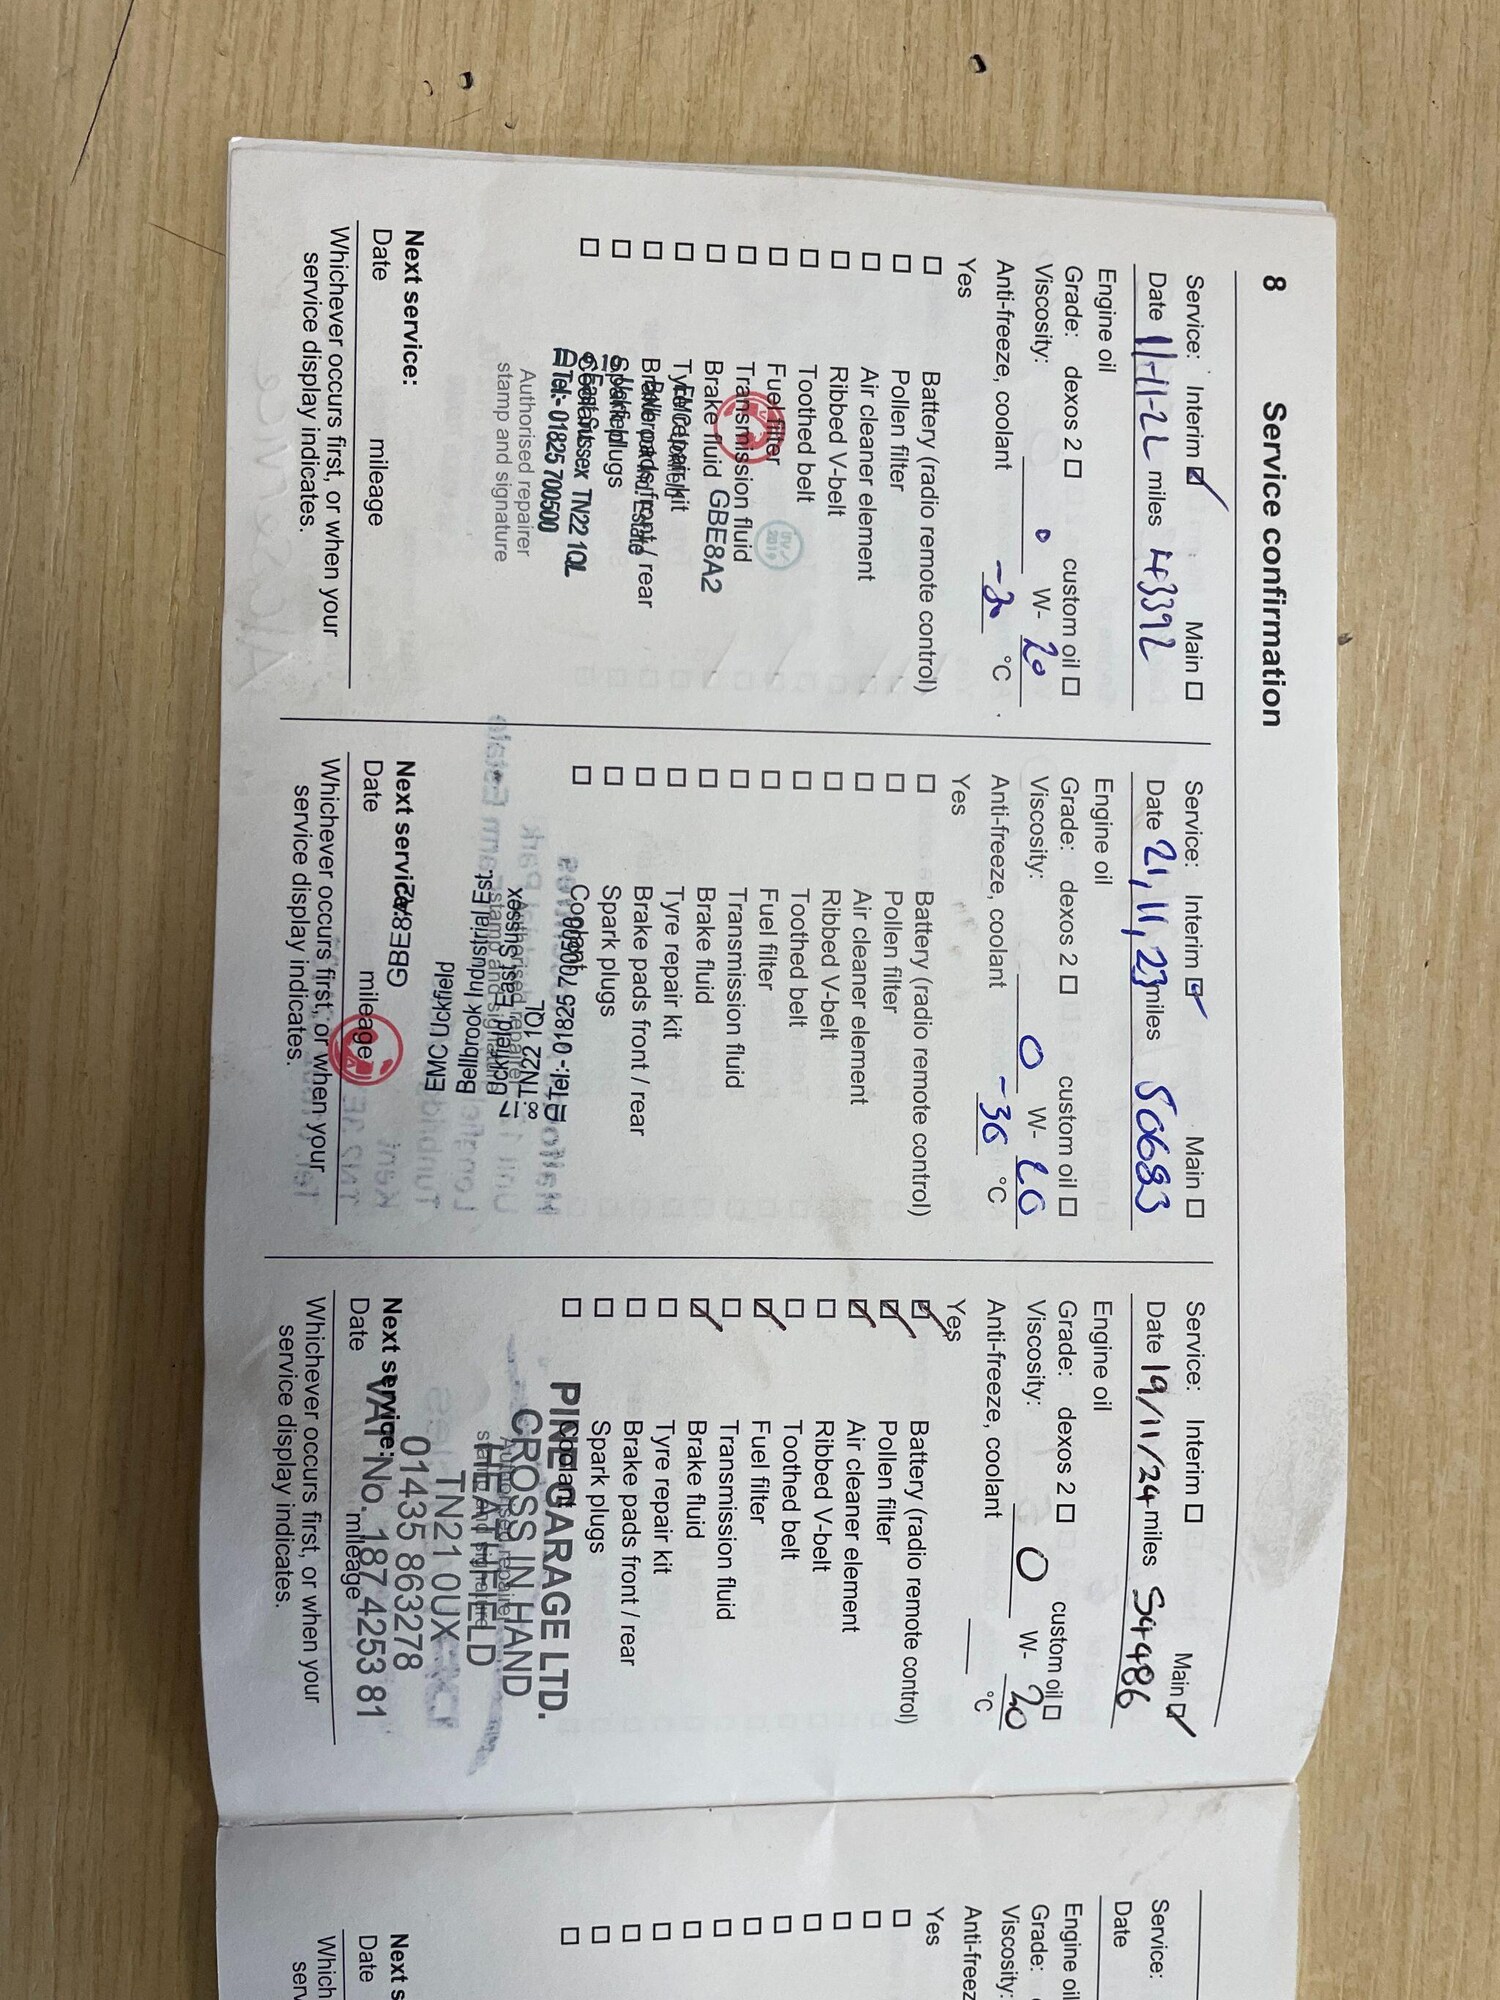 8 Service confirmation
Service: Interim Main
Date 11-11-22 miles 43392
Engine oil
Grade: dexos 2 custom oil
Viscosity: 0 W- 20
Anti-freeze, coolant -30 °C
Yes
Battery (radio remote control)
Pollen filter
Air cleaner element
Ribbed V-belt
Toothed belt
Fuel filter
Transmission fluid
Brake fluid GBE8A2
Tyre repair kit
Brake pads front / rear
Spark plugs
Coolant
East Sussex TN22 1QL
Tel:- 01825 700500
Authorised repairer
stamp and signature
Next service:
Date mileage
Whichever occurs first, or when your
service display indicates.
Service: Interim Main
Date 21,11,23 miles 50683
Engine oil
Grade: dexos 2 custom oil
Viscosity: 0 W- 20
Anti-freeze, coolant -36 °C
Yes
Battery (radio remote control)
Pollen filter
Air cleaner element
Ribbed V-belt
Toothed belt
Fuel filter
Transmission fluid
Brake fluid
Tyre repair kit
Brake pads front / rear
Spark plugs
Coolant
Tel:- 01825 700500
TN22 1QL
Uckfield East Sussex
Authorised repairer
stamp and signature
Bellbrook Industrial Est.
EMC Uckfield
GBE8A2
Next service:
Date mileage
Whichever occurs first, or when your
service display indicates.
Service: Interim Main
Date 19/11/24 miles 54486
Engine oil
Grade: dexos 2 custom oil
Viscosity: 0 W- 20
Anti-freeze, coolant °C
Yes
Battery (radio remote control)
Pollen filter
Air cleaner element
Ribbed V-belt
Toothed belt
Fuel filter
Transmission fluid
Brake fluid
Tyre repair kit
Brake pads front / rear
Spark plugs
Coolant
PINE GARAGE LTD.
CROSS IN HAND
Authorised repairer
stamp and signature
HEATHFIELD
TN21 0UX
01435 863278
VAT No. 187 4253 81
Next service:
Date mileage
Whichever occurs first, or when your
service display indicates.
Service:
Date
Engine oil
Grade:
Viscosity:
Anti-freez
Yes
Next s
Date
Which
serv